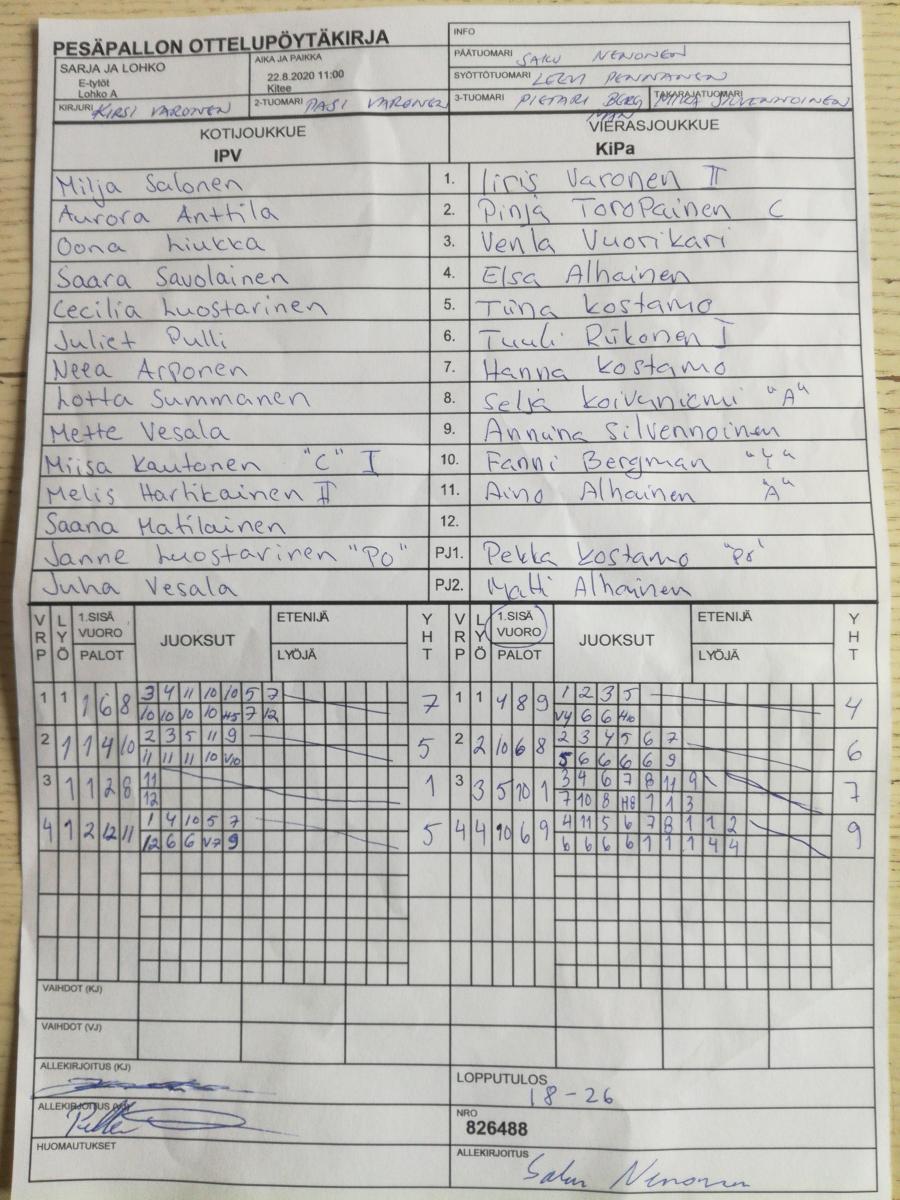 PESÄPALLON OTTELUPÖYTÄKIRJA
INFO
SARJA JA LOHKO
E-tytöt
Lohko A
AIKA JA PAIKKA
22.8.2020 11:00
Kitee
PÄÄTUOMARI SAKU NENONEN
SYÖTTÖTUOMARI LEEVI PENNANEN
KIRJURI KIRSI VARONEN
2-TUOMARI PASI VARONEN
3-TUOMARI PIETARI BERG MAN
TAKARAJATUOMARI MIKA SILVENNOINEN
KOTIJOUKKUE VIERASJOUKKUE
IPV KiPa
Milja Salonen 1. Iiris Varonen II
Aurora Anttila 2. Pinja Toropainen C
Oona Liukka 3. Venla Vuorikari
Saara Savolainen 4. Elsa Alhainen
Cecilia Luostarinen 5. Tiina Kostamo
Juliet Pulli 6. Tuuli Riikonen I
Neea Arponen 7. Hanna Kostamo
Lotta Summanen 8. Selja Koivuniemi "A"
Mette Vesala 9. Anniina Silvennoinen
Miisa Kautonen "C" I 10. Fanni Bergman "Y"
Melis Hartikainen II 11. Aino Alhainen "A"
Saana Matilainen 12.
Janne Luostarinen "Po" PJ1. Pekka Kostamo "Po"
Juha Vesala PJ2. Matti Alhainen
VRP LYÖ 1.SISÄ VUORO PALOT JUOKSUT ETENIJÄ LYÖJÄ YHT VRP LYÖ 1.SISÄ VUORO PALOT JUOKSUT ETENIJÄ LYÖJÄ YHT
1 1 1 6 8 3 4 11 10 10 5 7 7 1 1 4 8 9 1 2 3 5 4
10 10 10 10 H5 7 12 V4 6 6 H10
2 1 1 4 10 2 3 5 11 9 5 2 2 10 6 8 2 3 4 5 6 7 6
11 11 11 10 V10 5 6 6 6 6 9
3 1 1 2 8 11 1 3 3 5 10 1 3 4 6 7 8 11 9 7
12 7 10 8 H8 1 1 3
4 1 2 12 11 1 4 10 5 7 5 4 4 10 6 9 4 11 5 6 7 8 1 1 2 9
12 6 6 V7 9 6 6 6 6 1 1 1 4 4
VAIHDOT (KJ)
VAIHDOT (VJ)
ALLEKIRJOITUS (KJ)
LOPPUTULOS
18-26
ALLEKIRJOITUS (VJ)
NRO
826488
HUOMAUTUKSET
ALLEKIRJOITUS
Saku Nenonen